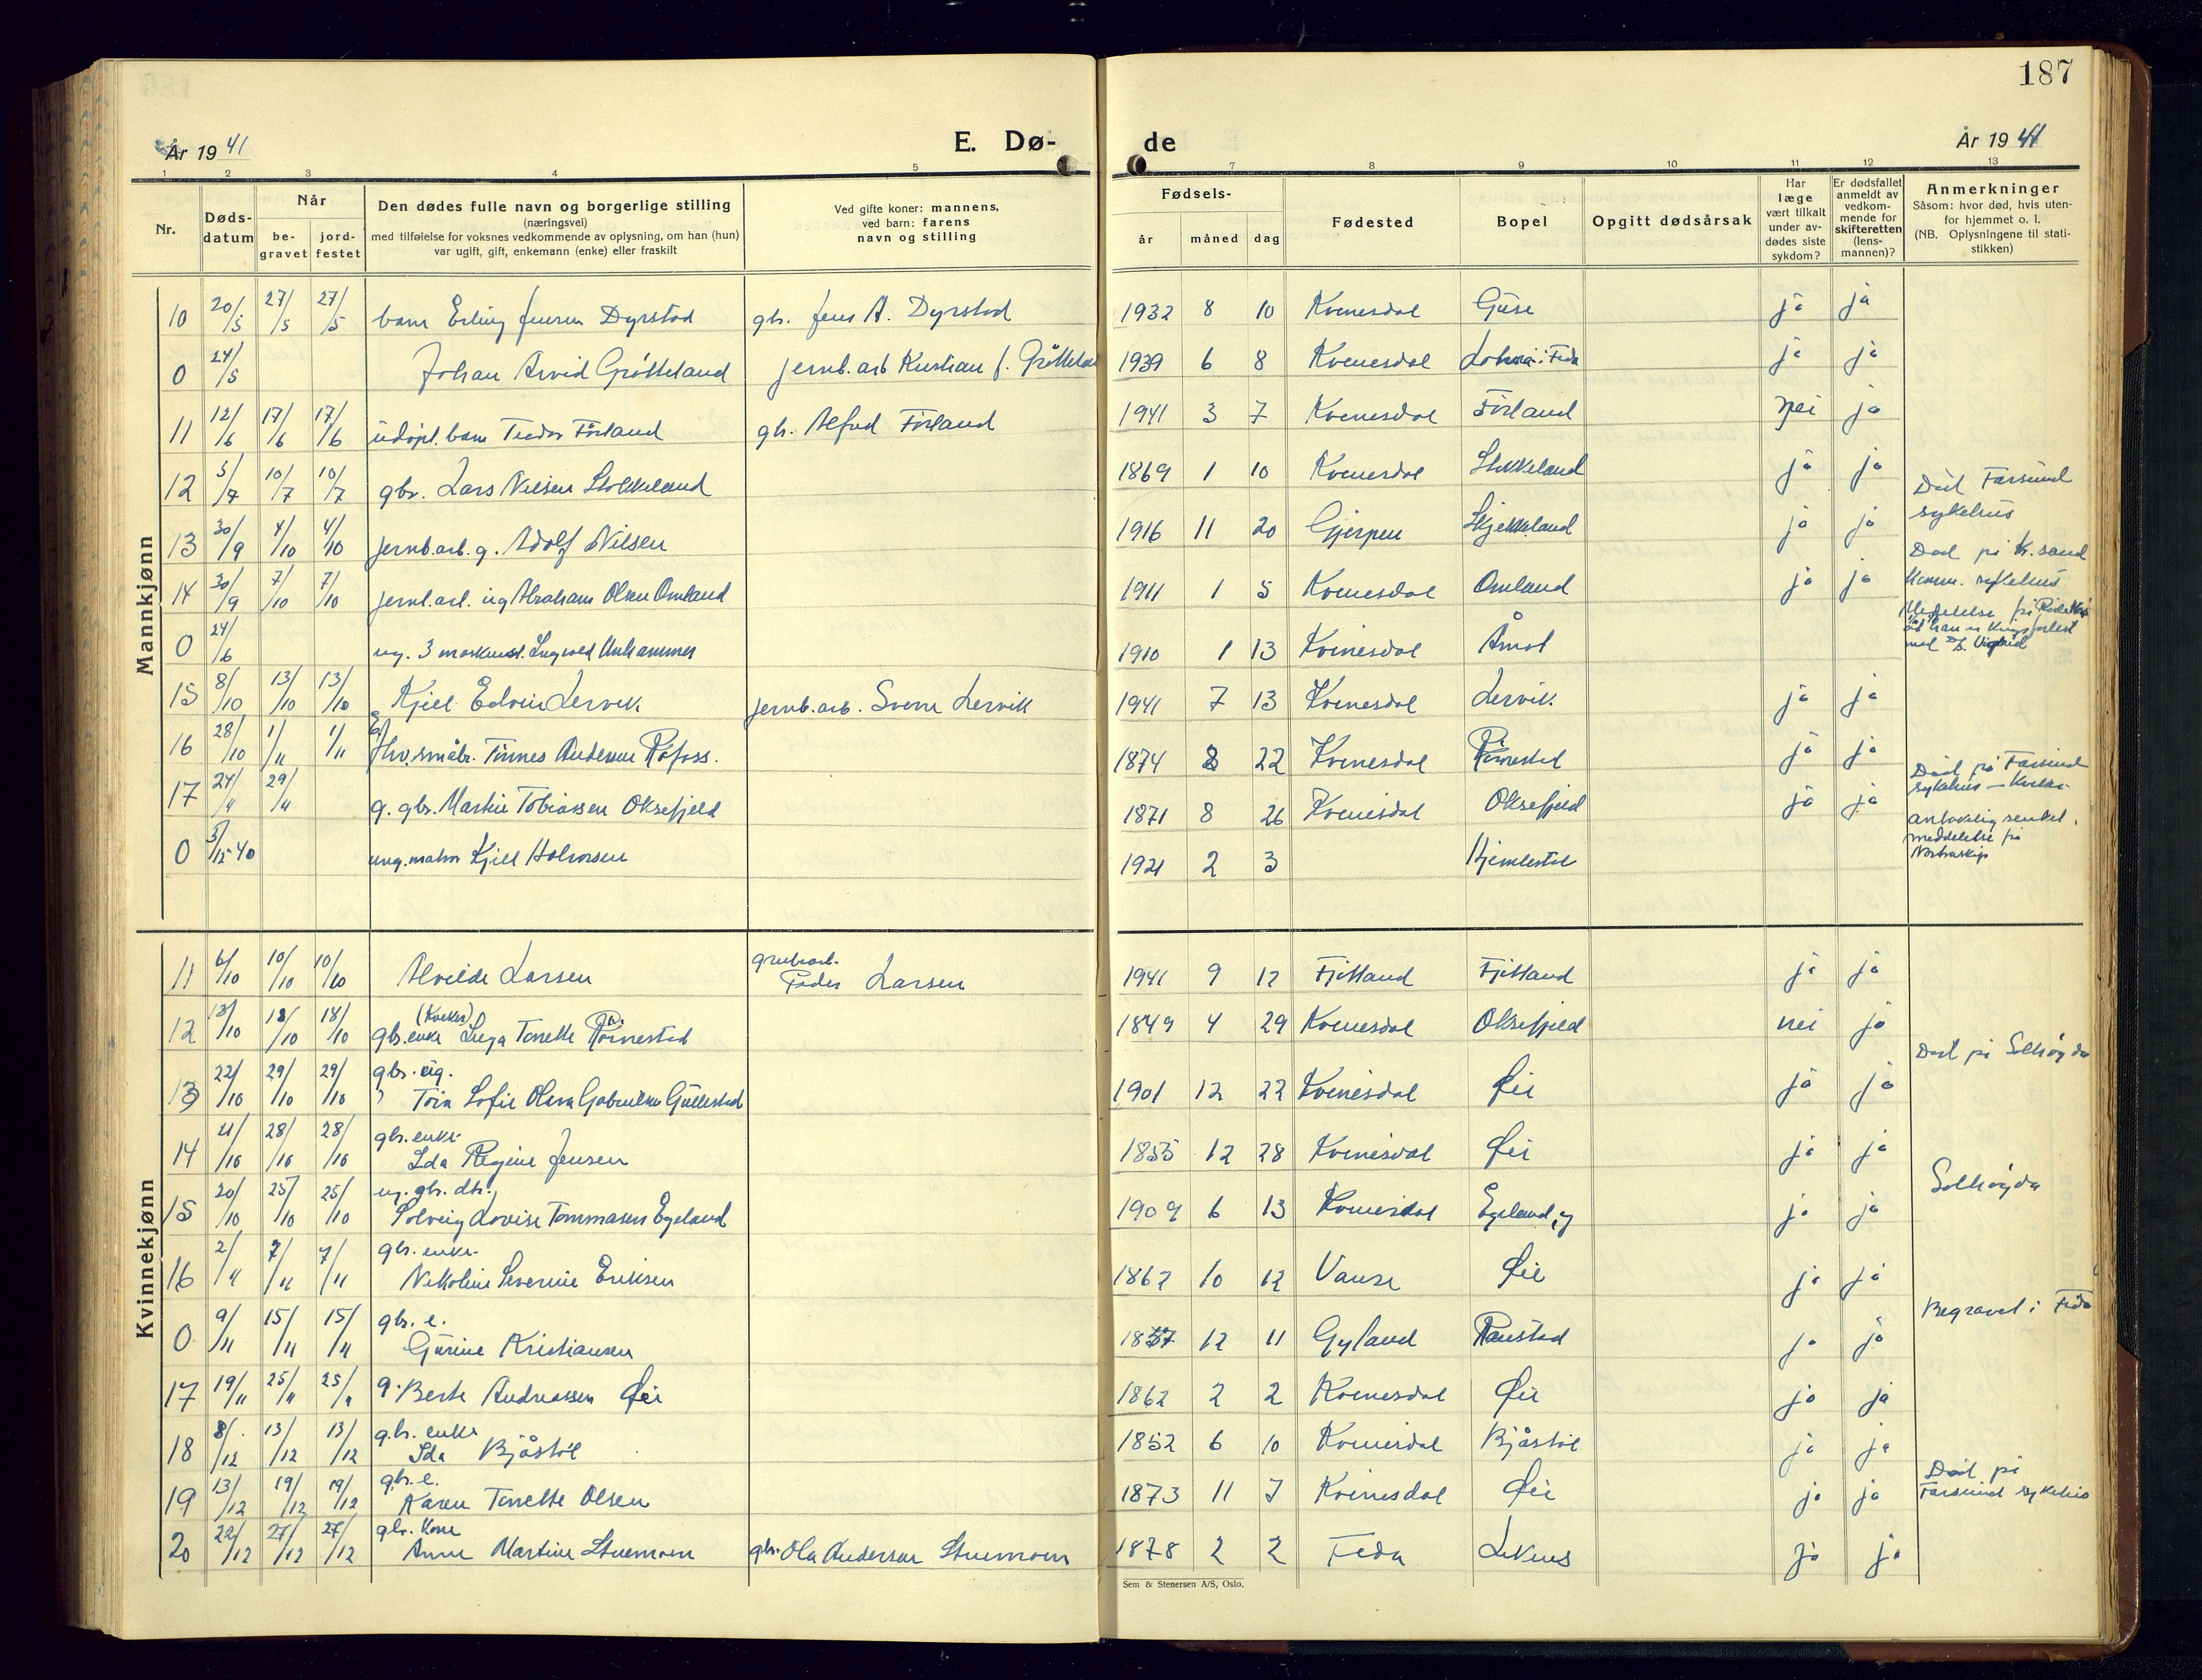 187
År 1941
E. Dø-
de
År 1941
1 2 3 4 5 7 8 9 10 11 12 13
Nr.
Døds-
datum
Når
be-
gravet
jord-
festet
Den dødes fulle navn og borgerlige stilling
(næringsvei)
med tilføielse for voksnes vedkommende av oplysning, om han (hun)
var ugift, gift, enkemann (enke) eller fraskilt
Ved gifte koner: mannens,
ved barn: farens
navn og stilling
Fødsels-
år måned dag
Fødested
Bopel
Opgitt dødsårsak
Har
læge
vært tilkalt
under av-
dødes siste
sykdom?
Er dødsfallet
anmeldt av
vedkom-
mende for
skifteretten
(lens-
mannen)?
Anmerkninger
Såsom: hvor død, hvis uten-
for hjemmet o. l.
(NB. Oplysningene til stati-
stikken)
Mannkjønn
10 20/5 27/5 27/5 barn Erling Jensen Dyrstad gbr. Jens A. Dyrstad 1932 8 10 Kvinesdal Guse ja ja
0 24/5 Johan Arvid Grötteland jernb.arb Kristian J. Grötteland 1939 6 8 Kvinesdal i Feda ja ja
11 12/6 17/6 17/6 udøpt barn Tiedor Förland gbr. Alfred Förland 1941 3 7 Kvinesdal Förland nei ja
12 5/7 10/7 10/7 gbr. Lars Nilsen Stokkeland 1869 1 10 Kvinesdal Stokkeland ja ja Död Farsund
sykehus
13 30/9 4/10 4/10 jernb.arb. g. Adolf Nilsen 1916 11 20 Gjerpen ja ja Död på Kr.sand
Komm. sykehus
14 30/9 7/10 7/10 jernb.arb. ug Abraham Olsen Omland 1911 1 5 Kvinesdal Omland ja ja
0 24/6 ug. 3 maskinist. Ingvald 1910 1 13 Kvinesdal Åmot Meddelelse fra
at han er krigsforlist
med D/S
15 8/10 13/10 13/10 Kjell Edvin Lervik jernb.arb. Sverre Lervik 1941 7 13 Kvinesdal Lervik. ja ja
16 28/10 1/11 1/11 fhv. småbr. Tönnes Andersen Råfoss. 1874 8 22 Kvinesdal Rörnestad ja ja
17 24/11 29/11 g. gbr. Martin Tobiassen Oksefjeld 1871 8 26 Kvinesdal Oksefjeld ja ja Död på Farsund
sykehus
0 5/12 40 ung. matros Kjell Halvorsen 1921 2 3 antakelig senket.
meddelelse fra
Nortraskip
Kvinnekjønn
11 6/10 10/10 10/10 Alvilde Larsen grubearb.
Peder Larsen 1941 9 12 Fjotland Fjotland ja ja
12 13/10 18/10 18/10 (Kveker)
gbr.enke Inga Tonette Rörnestad 1849 4 29 Kvinesdal Oksefjeld nei ja
13 22/10 29/10 29/10 gbr. ug.
Sofie Olava Gabrielsen Gullestad 1901 12 22 Kvinesdal Øie ja ja Död på Solhögda
14 21/10 28/10 28/10 gbr. enke
Ida Regine Jensen 1855 12 28 Kvinesdal Øie ja ja
15 20/10 25/10 25/10 ug. gbr. dtr.
Solveig Lovise Tommasen Egeland 1909 6 13 Kvinesdal Egeland, ja ja Solhögda
16 2/11 7/11 7/11 gbr. enke
Nikoline Severine Eriksen 1862 10 12 Vanse Øie ja ja
0 9/11 15/11 15/11 gbr. e.
Gurine Kristiansen 1857 12 11 Gyland Raustad ja ja Begravet i Feda
17 19/11 25/11 25/11 g. Berte Andreassen Øie 1862 2 2 Kvinesdal Øie ja ja
18 8/12 13/12 13/12 gbr. enke
Ida Bjåstöl 1852 6 10 Kvinesdal Bjåstöl ja ja
19 13/12 19/12 19/12 gbr. e.
Karen Tonette Olsen 1873 11 7 Kvinesdal Øie ja ja Död på
Farsund sykehus
20 22/12 27/12 27/12 gbr. kone
Anne Martine Stuemoen gbr. Ola Andersen Stuemoen 1878 2 2 Feda Lekns ja ja
Sem & Stenersen A/S, Oslo.